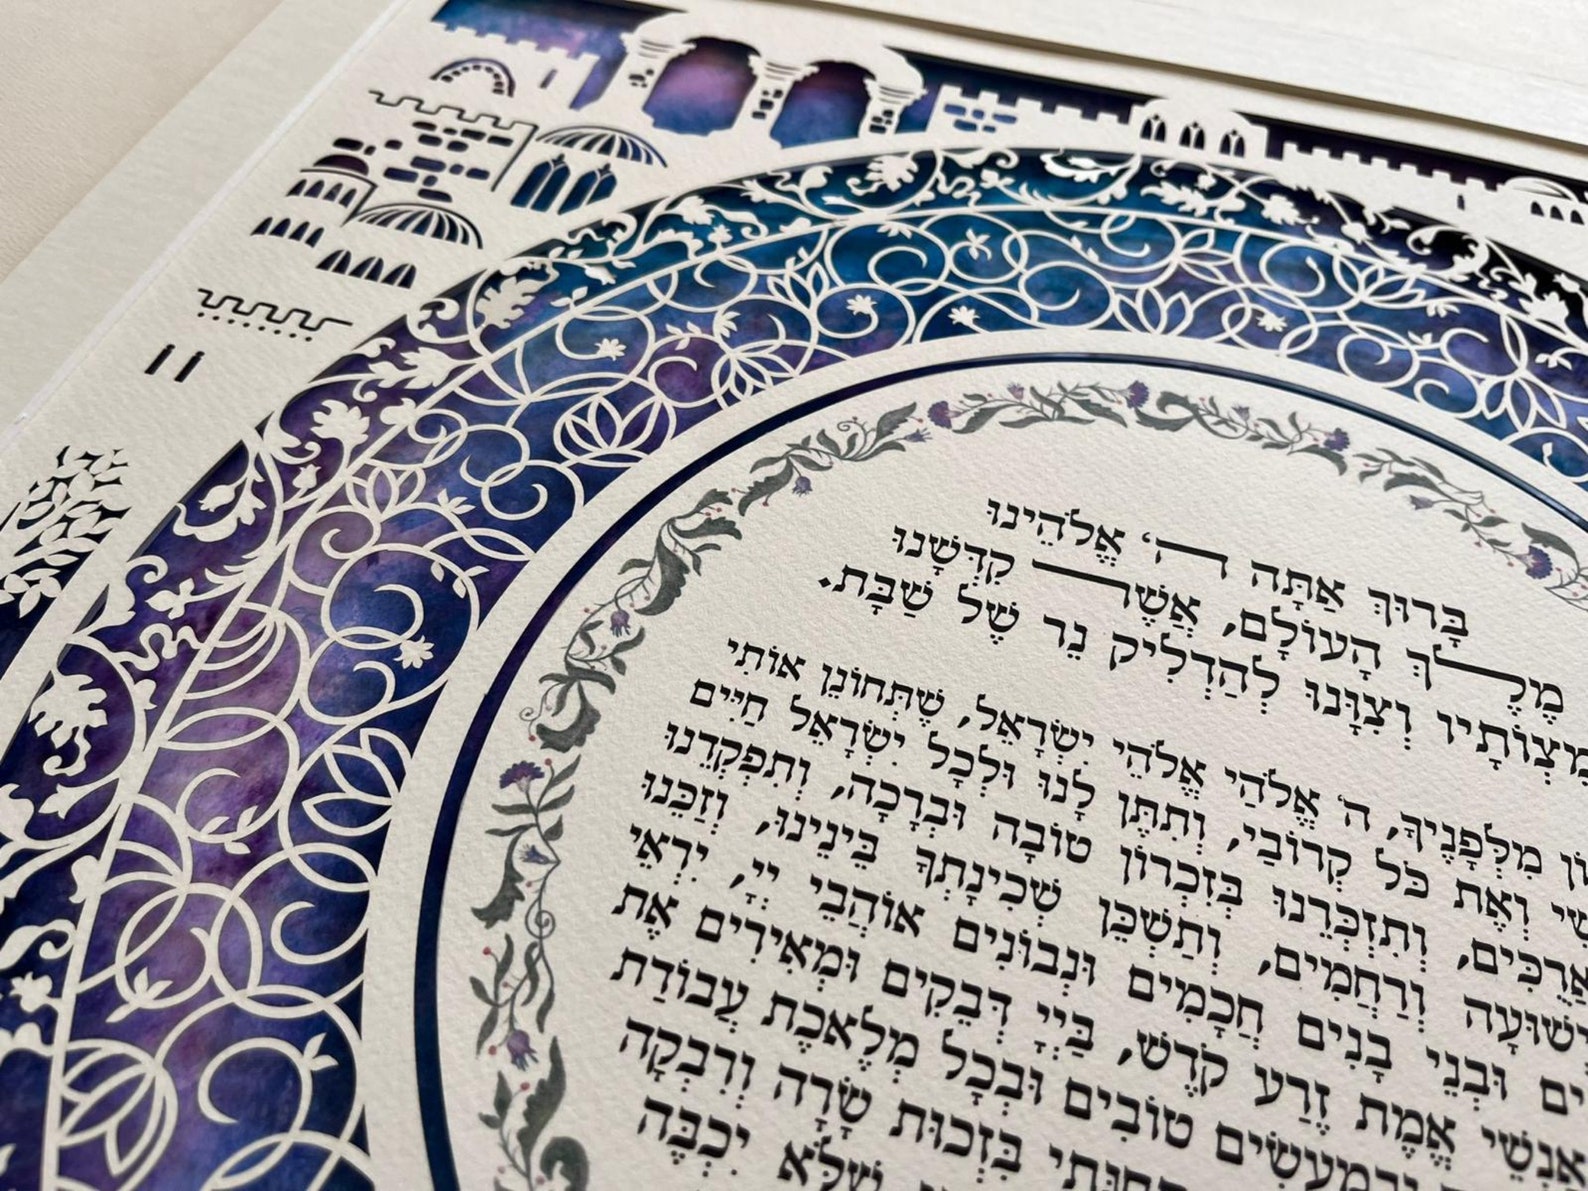 בָּרוּךְ אַתָּה ה׳ אֱלֹהֵינוּ
מֶלֶךְ הָעוֹלָם, אֲשֶׁר קִדְּשָׁנוּ
וְצִוָּנוּ לְהַדְלִיק נֵר שֶׁל שַׁבָּת.
מִלְּפָנֶיךָ, ה׳ אֱלֹהַי אֱלֹהֵי יִשְׂרָאֵל, שֶׁתְּחוֹנֵן אוֹתִי
וְאֶת כׇּל קְרוֹבַי, וְתִתֶּן לָנוּ וּלְכׇל יִשְׂרָאֵל חַיִּים
וְתִזְכְּרֵנוּ בְּזִכְרוֹן טוֹבָה וּבְרָכָה, וְתִפְקְדֵנוּ
וְרַחֲמִים, וְתַשְׁכֵּן שְׁכִינָתְךָ בֵּינֵינוּ, וְזַכֵּנוּ
וּבְנֵי בָנִים חֲכָמִים וּנְבוֹנִים אוֹהֲבֵי יְיָ, יִרְאֵי
אֱמֶת זֶרַע קֹדֶשׁ, בַּייָ דְּבֵקִים וּמְאִירִים אֶת
טוֹבִים וּבְכׇל מְלֶאכֶת עֲבוֹדַת
בִּזְכוּת שָׂרָה וְרִבְקָה
שֶׁלֹּא יִכְבֶּה